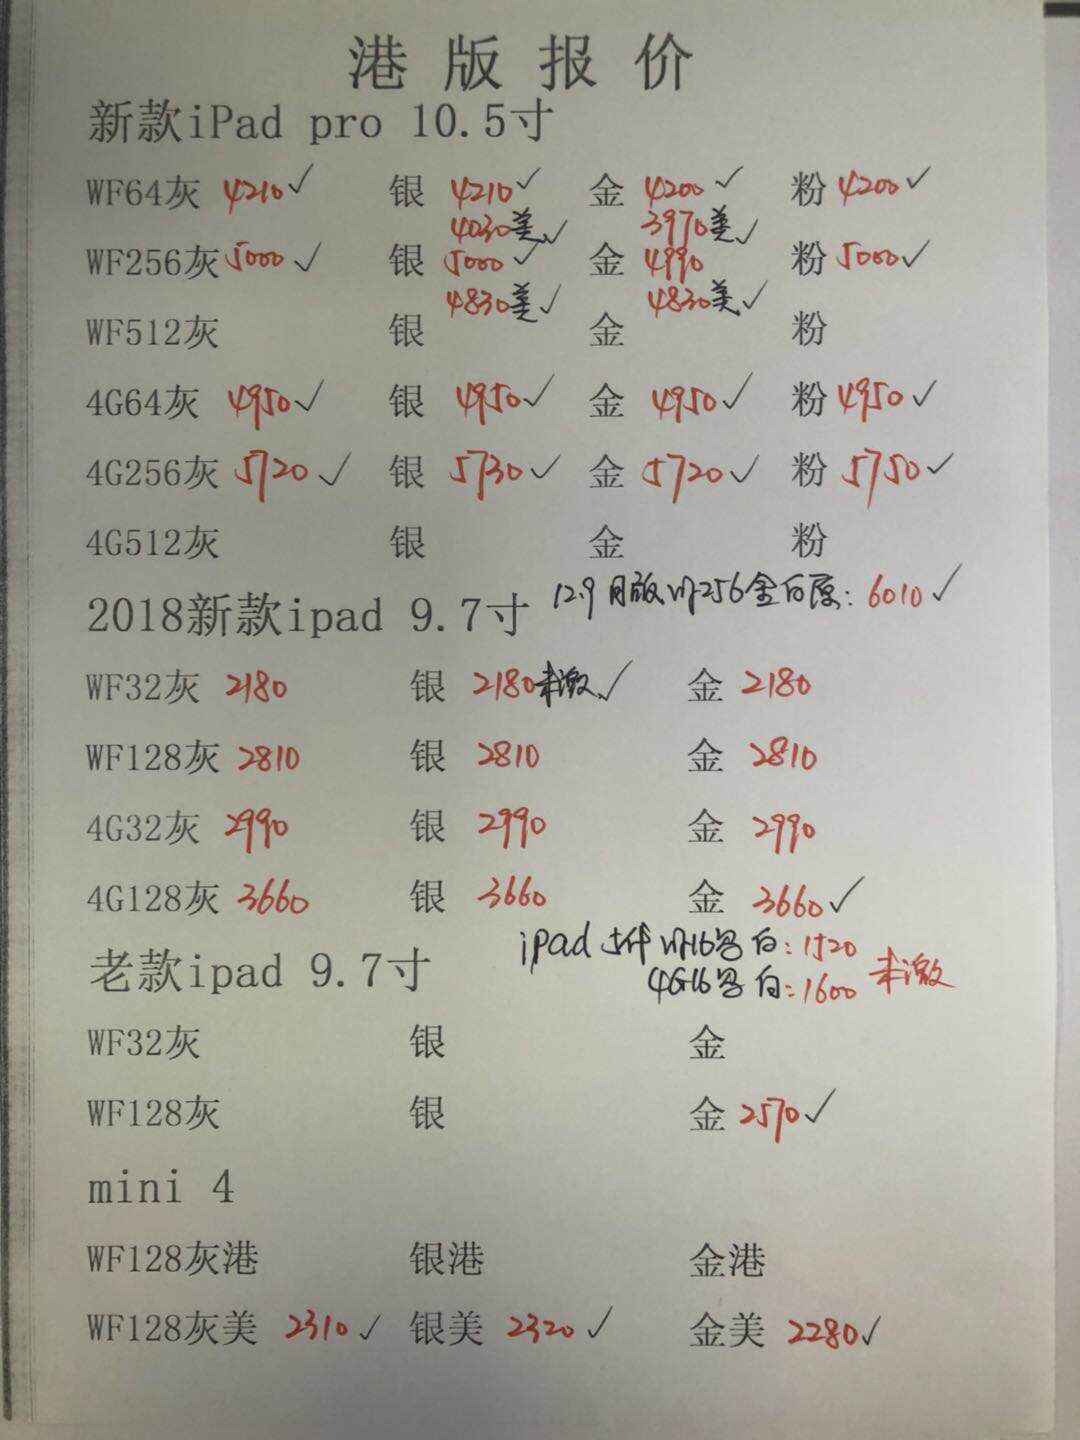 港版报价
新款iPad pro 10.5寸
WF64灰 4210✓ 银 4210✓ 金 4200✓ 粉 4200✓
4030美✓ 3970美✓
WF256灰 5000✓ 银 5000✓ 金 4990 粉 5000✓
4830美✓ 4830美✓
WF512灰 银 金 粉
4G64灰 4950✓ 银 4950✓ 金 4950✓ 粉 4950✓
4G256灰 5720✓ 银 5730✓ 金 5720✓ 粉 5750✓
4G512灰 银 金 粉
12.9 月版 Wf256金白原: 6010✓
2018新款ipad 9.7寸
WF32灰 2180 银 2180未激✓ 金 2180
WF128灰 2810 银 2810 金 2810
4G32灰 2990 银 2990 金 2990
4G128灰 3660 银 3660 金 3660✓
iPad 5代 Wf16 白: 1520
4G16 白: 1600 未激
老款ipad 9.7寸
WF32灰 银 金
WF128灰 银 金 2570✓
mini 4
WF128灰港 银港 金港
WF128灰美 2310✓ 银美 2320✓ 金美 2280✓